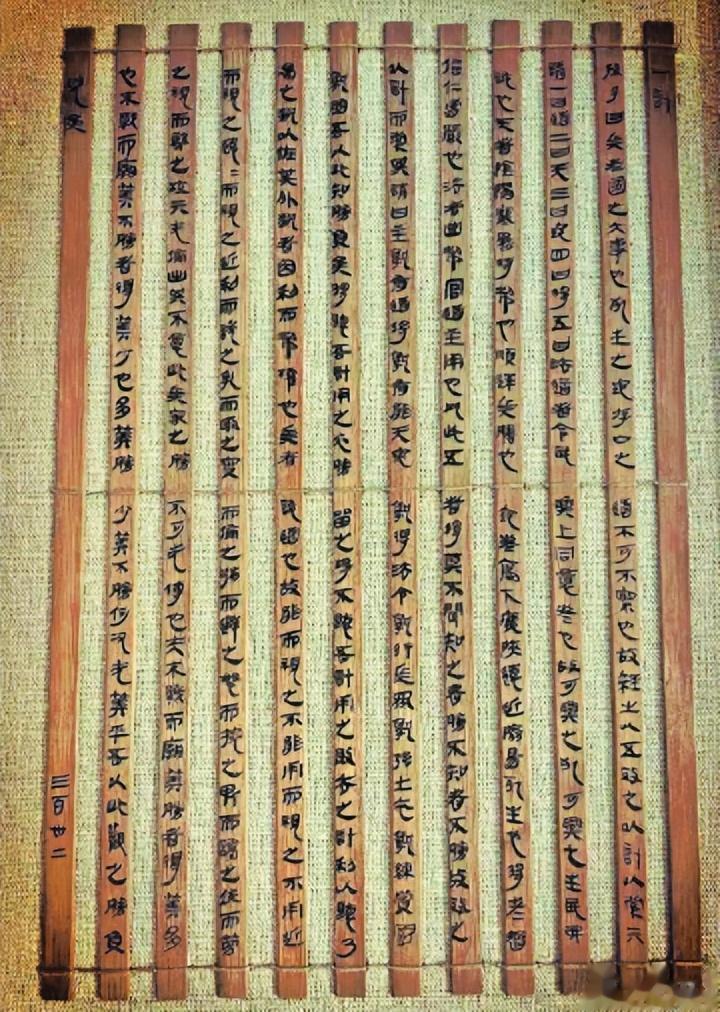 一計
孫子曰兵者國之大事也死生之地存亡之道不可不察也故經之以五效之以計以索亓
請一曰道二曰天三曰地四曰將五曰法道者令民與上同意者也故可與之死可與之生民弗
詭也天者陰陽寒暑時制也順逆兵勝也地者高下廣陝遠近險易死生也將者智
信仁勇嚴也法者曲制官道主用也凡此五者將莫不聞知之者勝不知者不勝故效之
以計而索其請曰主孰有道將孰有能天地孰得法令孰行兵衆孰強士卒孰練賞罰
孰明吾以此知勝負矣將聽吾計用之必勝留之將不聽吾計用之敗去之計利以聽乃
爲之埶以佐其外埶者因利而制權也兵者詭道也故能而視之不能用而視之不用近
而視之遠=而視之近利而誘之亂而取之實而備之強而避之怒而撓之卑而驕之佚而勞
之親而離之攻亓无備出其不意此兵家之勝不可先傳也夫未戰而廟筭勝者得筭多
也未戰而廟筭不勝者得筭少也多筭勝少筭不勝何況无筭乎吾以此觀之勝負
見矣 三百卅二